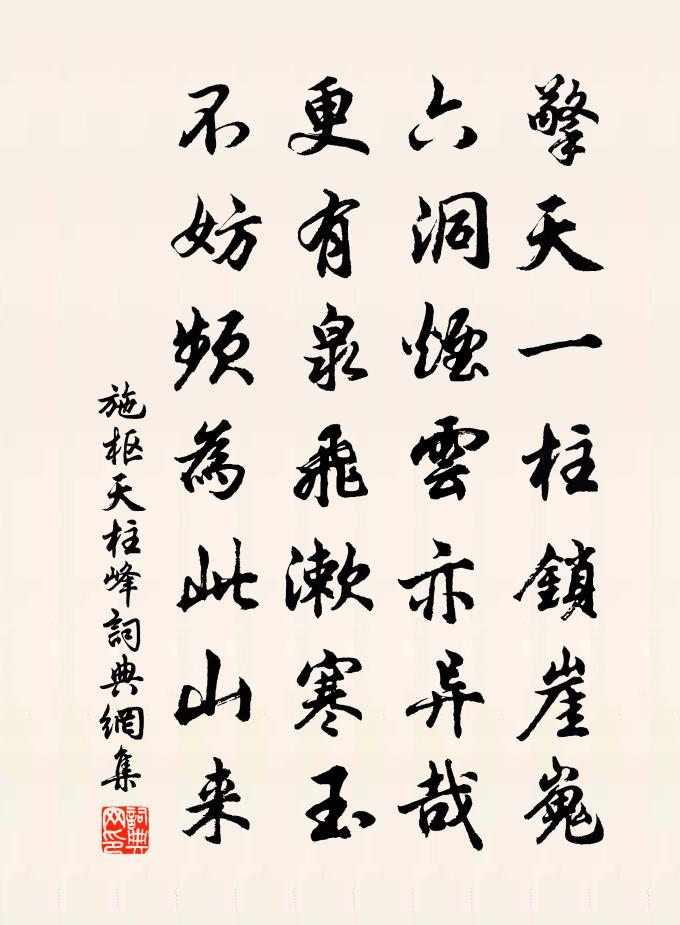 擎天一柱鎖崖嵬
六洞煙雲亦异哉
更有泉飛漱寒玉
不妨頻為此山来
施枢天柱峰詞典網集
詞典网印